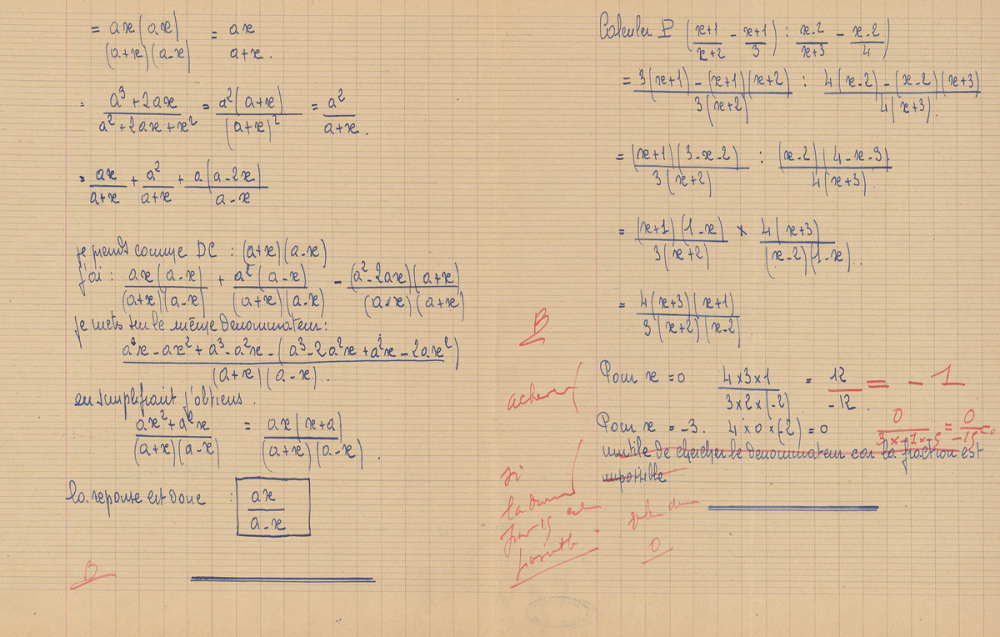 = ax(ax) / (a+x)(a-x) = ax / a+x.
= a³+2ax / a²+2ax+x² = a²(a+x) / (a+x)² = a² / a+x.
= ax / a+x + a² / a+x + a(a-2x) / a-x
je prends comme DC : (a+x)(a-x)
j'ai : ax(a-x) / (a+x)(a-x) + a²(a-x) / (a+x)(a-x) - (a²-2ax)(a+x) / (a-x)(a+x)
je mets sur le même dénominateur :
a²x-ax²+a³-a²x-(a³-2a²x+a²x-2ax²) / (a+x)(a-x).
en simplifiant j'obtiens.
ax²+a²x / (a+x)(a-x) = ax(x+a) / (a+x)(a-x).
la réponse est donc : ax / a-x
B
Calculer P (x+1 / x+2 - x+1 / 3) : x-2 / x+3 - x-2 / 4)
= 3(x+1)-(x+1)(x+2) / 3(x+2) : 4(x-2)-(x-2)(x+3) / 4(x+3).
= (x+1)(3-x-2) / 3(x+2) : (x-2)(4-x-3) / 4(x+3)
= (x+1)(1-x) / 3(x+2) × 4(x+3) / (x-2)(1-x).
= 4(x+3)(x+1) / 3(x+2)(x-2)
B
Pour x=0 4×3×1 / 3×2×(-2) = 12 / -12 = -1
achever
Pour x=-3. 4×0×(-2)=0 0 / 3×-1×-5 = 0 / -15
inutile de chercher le dénominateur car la fraction est
impossible
si
0